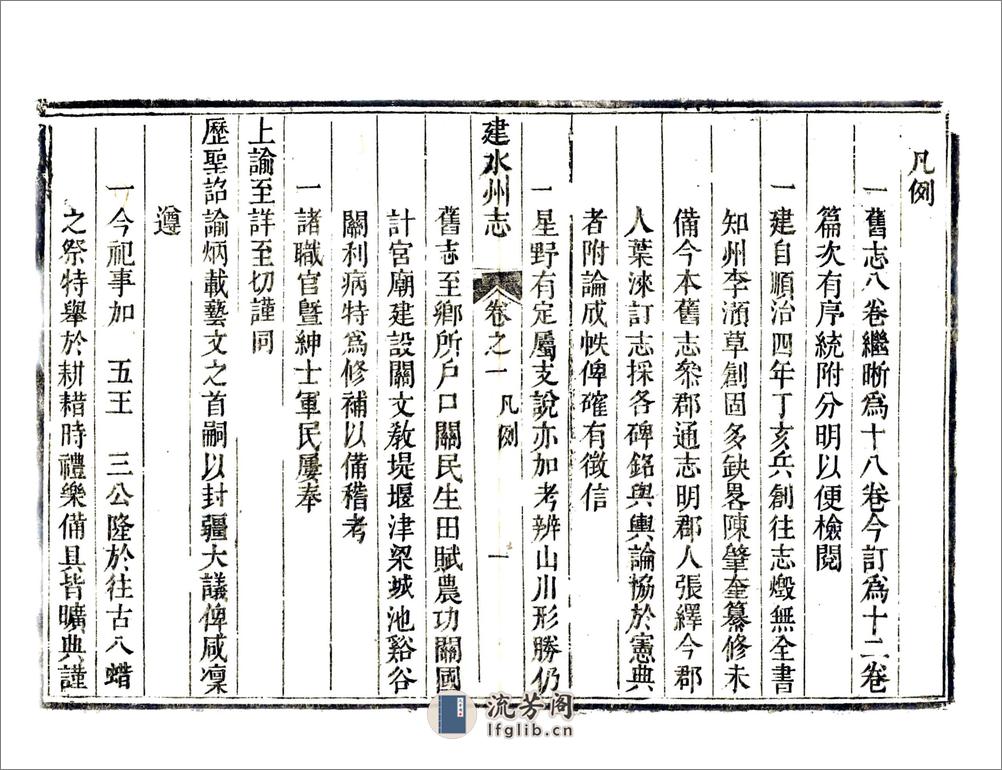 凡例
一舊志八卷繼晰爲十八卷今訂爲十二卷
篇次有序統附分明以便檢閱
一建自順治四年丁亥兵創往志燬無全書
知州李瀕草創固多缺畧陳肇奎纂修未
備今本舊志叅郡通志明郡人張繹今郡
人葉淶訂志採各碑銘與輿論協於憲典
者附論成帙俾確有徵信
一星野有定屬支說亦加考辨山川形勝仍
建水州志 卷之一 凡例 一
舊志至鄉所戶口關民生田賦農功關國
計宮廟建設關文敎堤堰津梁城池谿谷
關利病特爲修補以備稽考
一諸職官暨紳士軍民屢奉
上諭至詳至切謹同
歷聖詔諭炳載藝文之首嗣以封疆大議俾咸凜
遵
一今祀事加 五王 三公隆於往古八蜡
之祭特舉於耕耤時禮樂備具皆曠典謹
流芳阁
lfglib.cn